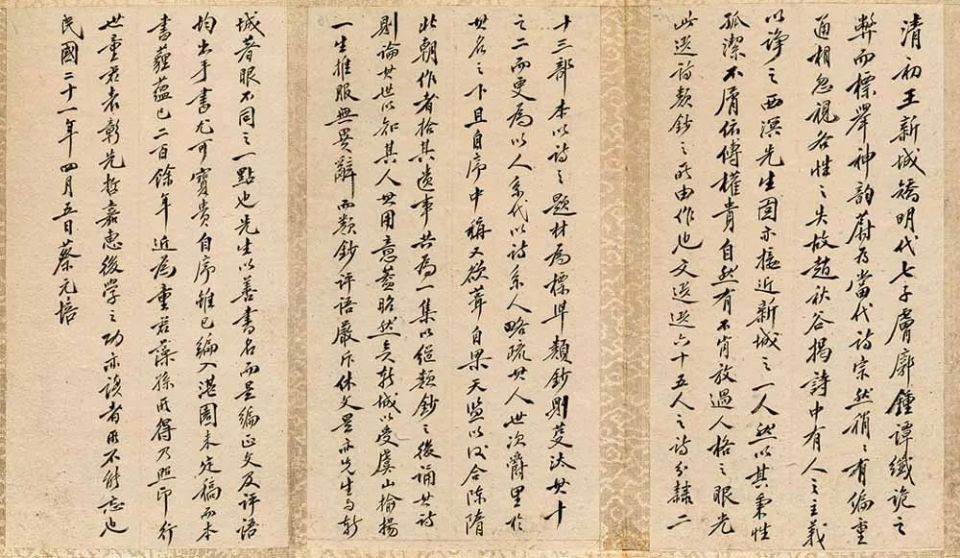 清初王新城矯明代七子膚廓鍾譚纖詭之
弊而標舉神韵蔚为當代詩宗然稍〻有偏重
通相忽視各性之失故趙秋谷揭詩中有人之主義
以諍之西溟先生固亦接近新城之一人然以其秉性
孤潔不屑依傅權貴自然有不肯放過人格之眼光
此選詩類鈔之所由作也文選選六十五人之詩分隸二
十三部本以詩之題材為標準類鈔則芟汰其十
之二而更為以人系代以詩系人略疏其人世次爵里於
其名之下且自序中稱又欲葺自梁天監以後合陳隋
北朝作者拾其遺事共為一集以繼類鈔之後誦其詩
則論其世以知其人其用意蓋昭然矣新城以受虞山揄揚
一生推服無異辭而類鈔評語嚴斥休文是亦先生与新
城著眼不同之一點也先生以善書名而是編正文及評語
均出手書尤可寶貴自序雖已編入湛園未定稿而本
書薶蕴已二百餘年近為童君藻孫所得乃照印行
世童君表彰先哲嘉惠後學之功亦讀者所不能忘也
民國二十一年四月五日蔡元培